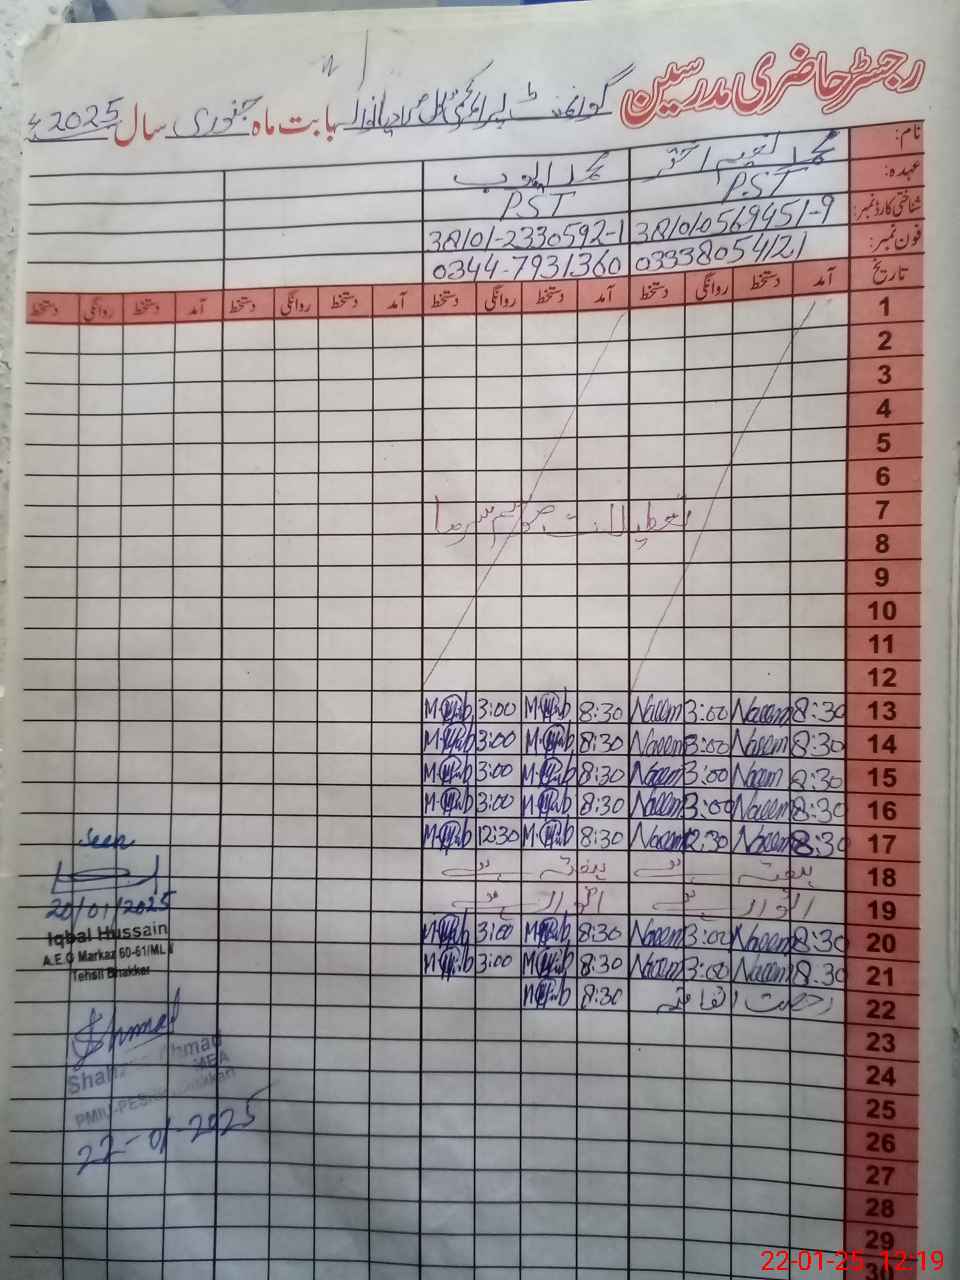 رجسٹر حاضری مدرسین گورنمنٹ پرائمری بابت ماہ جنوری سال 2025ء
نام: محمد نعیم اختر محمد ایوب
عہدہ: P.S.T P.S.T
شناختی کارڈ نمبر: 38101-0569451-9 38101-2330592-1
فون نمبر: 03338054121 0344-7931360
تاریخ آمد دستخط روانگی دستخط آمد دستخط روانگی دستخط آمد دستخط روانگی دستخط آمد دستخط روانگی دستخط
1
2
3
4
5
6
7 تعطیلات موسم سرما
8
9
10
11
12
13 8:30 Naeem 3:00 Naeem 8:30 M.Ayub 3:00 M.Ayub
14 8:30 Naeem 3:00 Naeem 8:30 M.Ayub 3:00 M.Ayub
15 8:30 Naeem 3:00 Naeem 8:30 M.Ayub 3:00 M.Ayub
16 8:30 Naeem 3:00 Naeem 8:30 M.Ayub 3:00 M.Ayub
17 8:30 Naeem 12:30 Naeem 8:30 M.Ayub 12:30 M.Ayub
18 ہفتہ ہفتہ
19 اتوار اتوار
20 8:30 Naeem 3:00 Naeem 8:30 M.Ayub 3:00 M.Ayub
21 8:30 Naeem 3:00 Naeem 8:30 M.Ayub 3:00 M.Ayub
22 رخصت اتفاقیہ 8:30 M.Ayub
23
24
25
26
27
28
29
30
Seen
20/01/2025
Iqbal Hussain
A.E.O Markaz 60-61/ML
Tehsil Bhakkar
Ahmad
Ahmad
MEA
22-01-2025
22-01-25 12:19